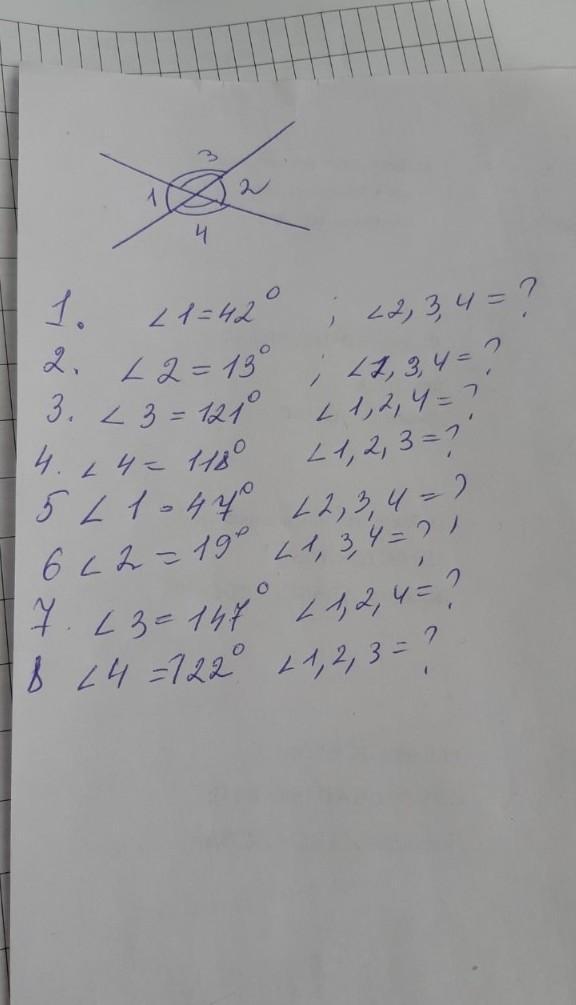 3
1 2
4
1. ∠1=42° ; ∠2, 3, 4 = ?
2. ∠2 = 13° ; ∠1, 3, 4 = ?
3. ∠3 = 121° ∠1, 2, 4 = ?
4. ∠4 = 118° ∠1, 2, 3 = ?
5 ∠1 = 47° ∠2, 3, 4 = ?
6 ∠2 = 19° ∠1, 3, 4 = ?
7. ∠3 = 147° ∠1, 2, 4 = ?
8 ∠4 = 122° ∠1, 2, 3 = ?